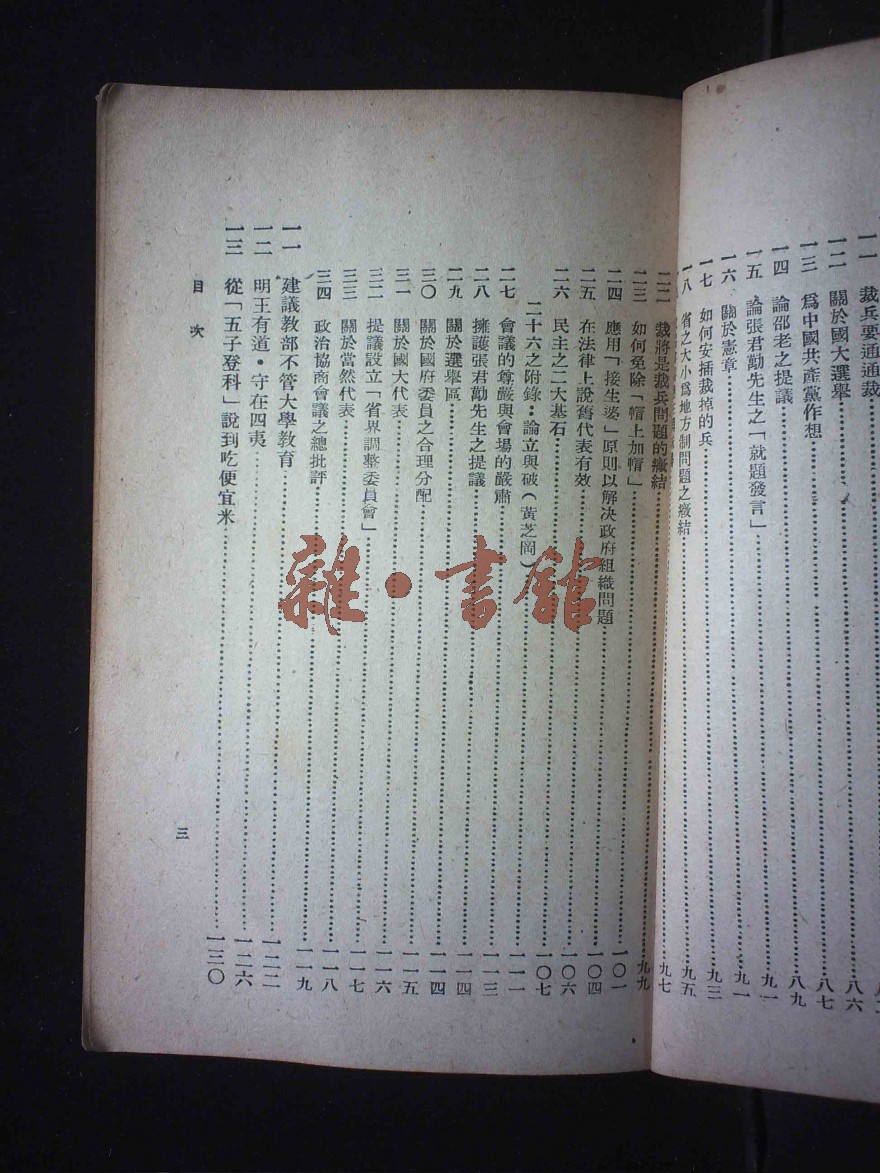 一一 裁兵要通通裁 八六
一二 關於國大選舉 八七
一三 爲中國共產黨作想 八九
一四 論邵老之提議 九一
一五 論張君勱先生之「就題發言」 九一
一六 關於憲章 九三
一七 如何安插裁掉的兵 九五
一八 省之大小爲地方制問題之癥結 九七
二二 裁將是裁兵問題的癥結 九九
二三 如何免除「帽上加帽」 一〇一
二四 應用「接生婆」原則以解决政府組織問題 一〇四
二五 在法律上說舊代表有效 一〇六
二六 民主之二大基石 一〇七
二十六之附錄・論立與破（黃芝岡） 一一一
二七 會議的尊嚴與會場的嚴肅 一一三
二八 擁護張君勱先生之提議 一一四
二九 關於選舉區 一一四
三〇 關於國府委員之合理分配 一一五
三一 關於國大代表 一一六
三二 提議設立「省界調整委員會」 一一七
三三 關於當然代表 一一八
三四 政治協商會議之總批評 一一九
一一 建議教部不管大學教育 一二二
一二 明王有道・守在四夷 一二六
一三 從「五子登科」說到吃便宜米 一三〇
目次
三
雜・書館